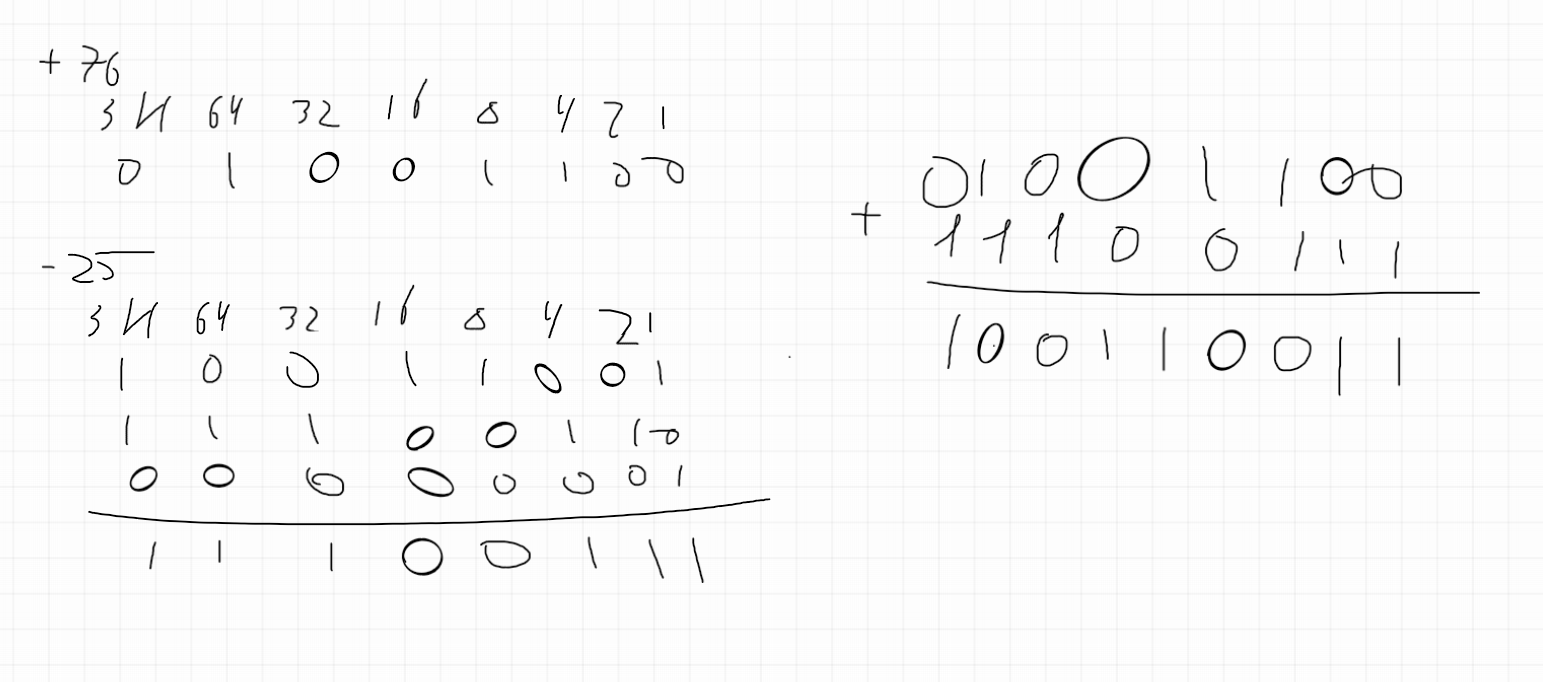 + 76
ЗН 64 32 16 8 4 2 1
0 1 0 0 1 1 0 0
- 25
ЗН 64 32 16 8 4 2 1
1 0 0 1 1 0 0 1
1 1 1 0 0 1 1 0
0 0 0 0 0 0 0 1
1 1 1 0 0 1 1 1
0 1 0 0 1 1 0 0
+
1 1 1 0 0 1 1 1
1 0 0 1 1 0 0 1 1